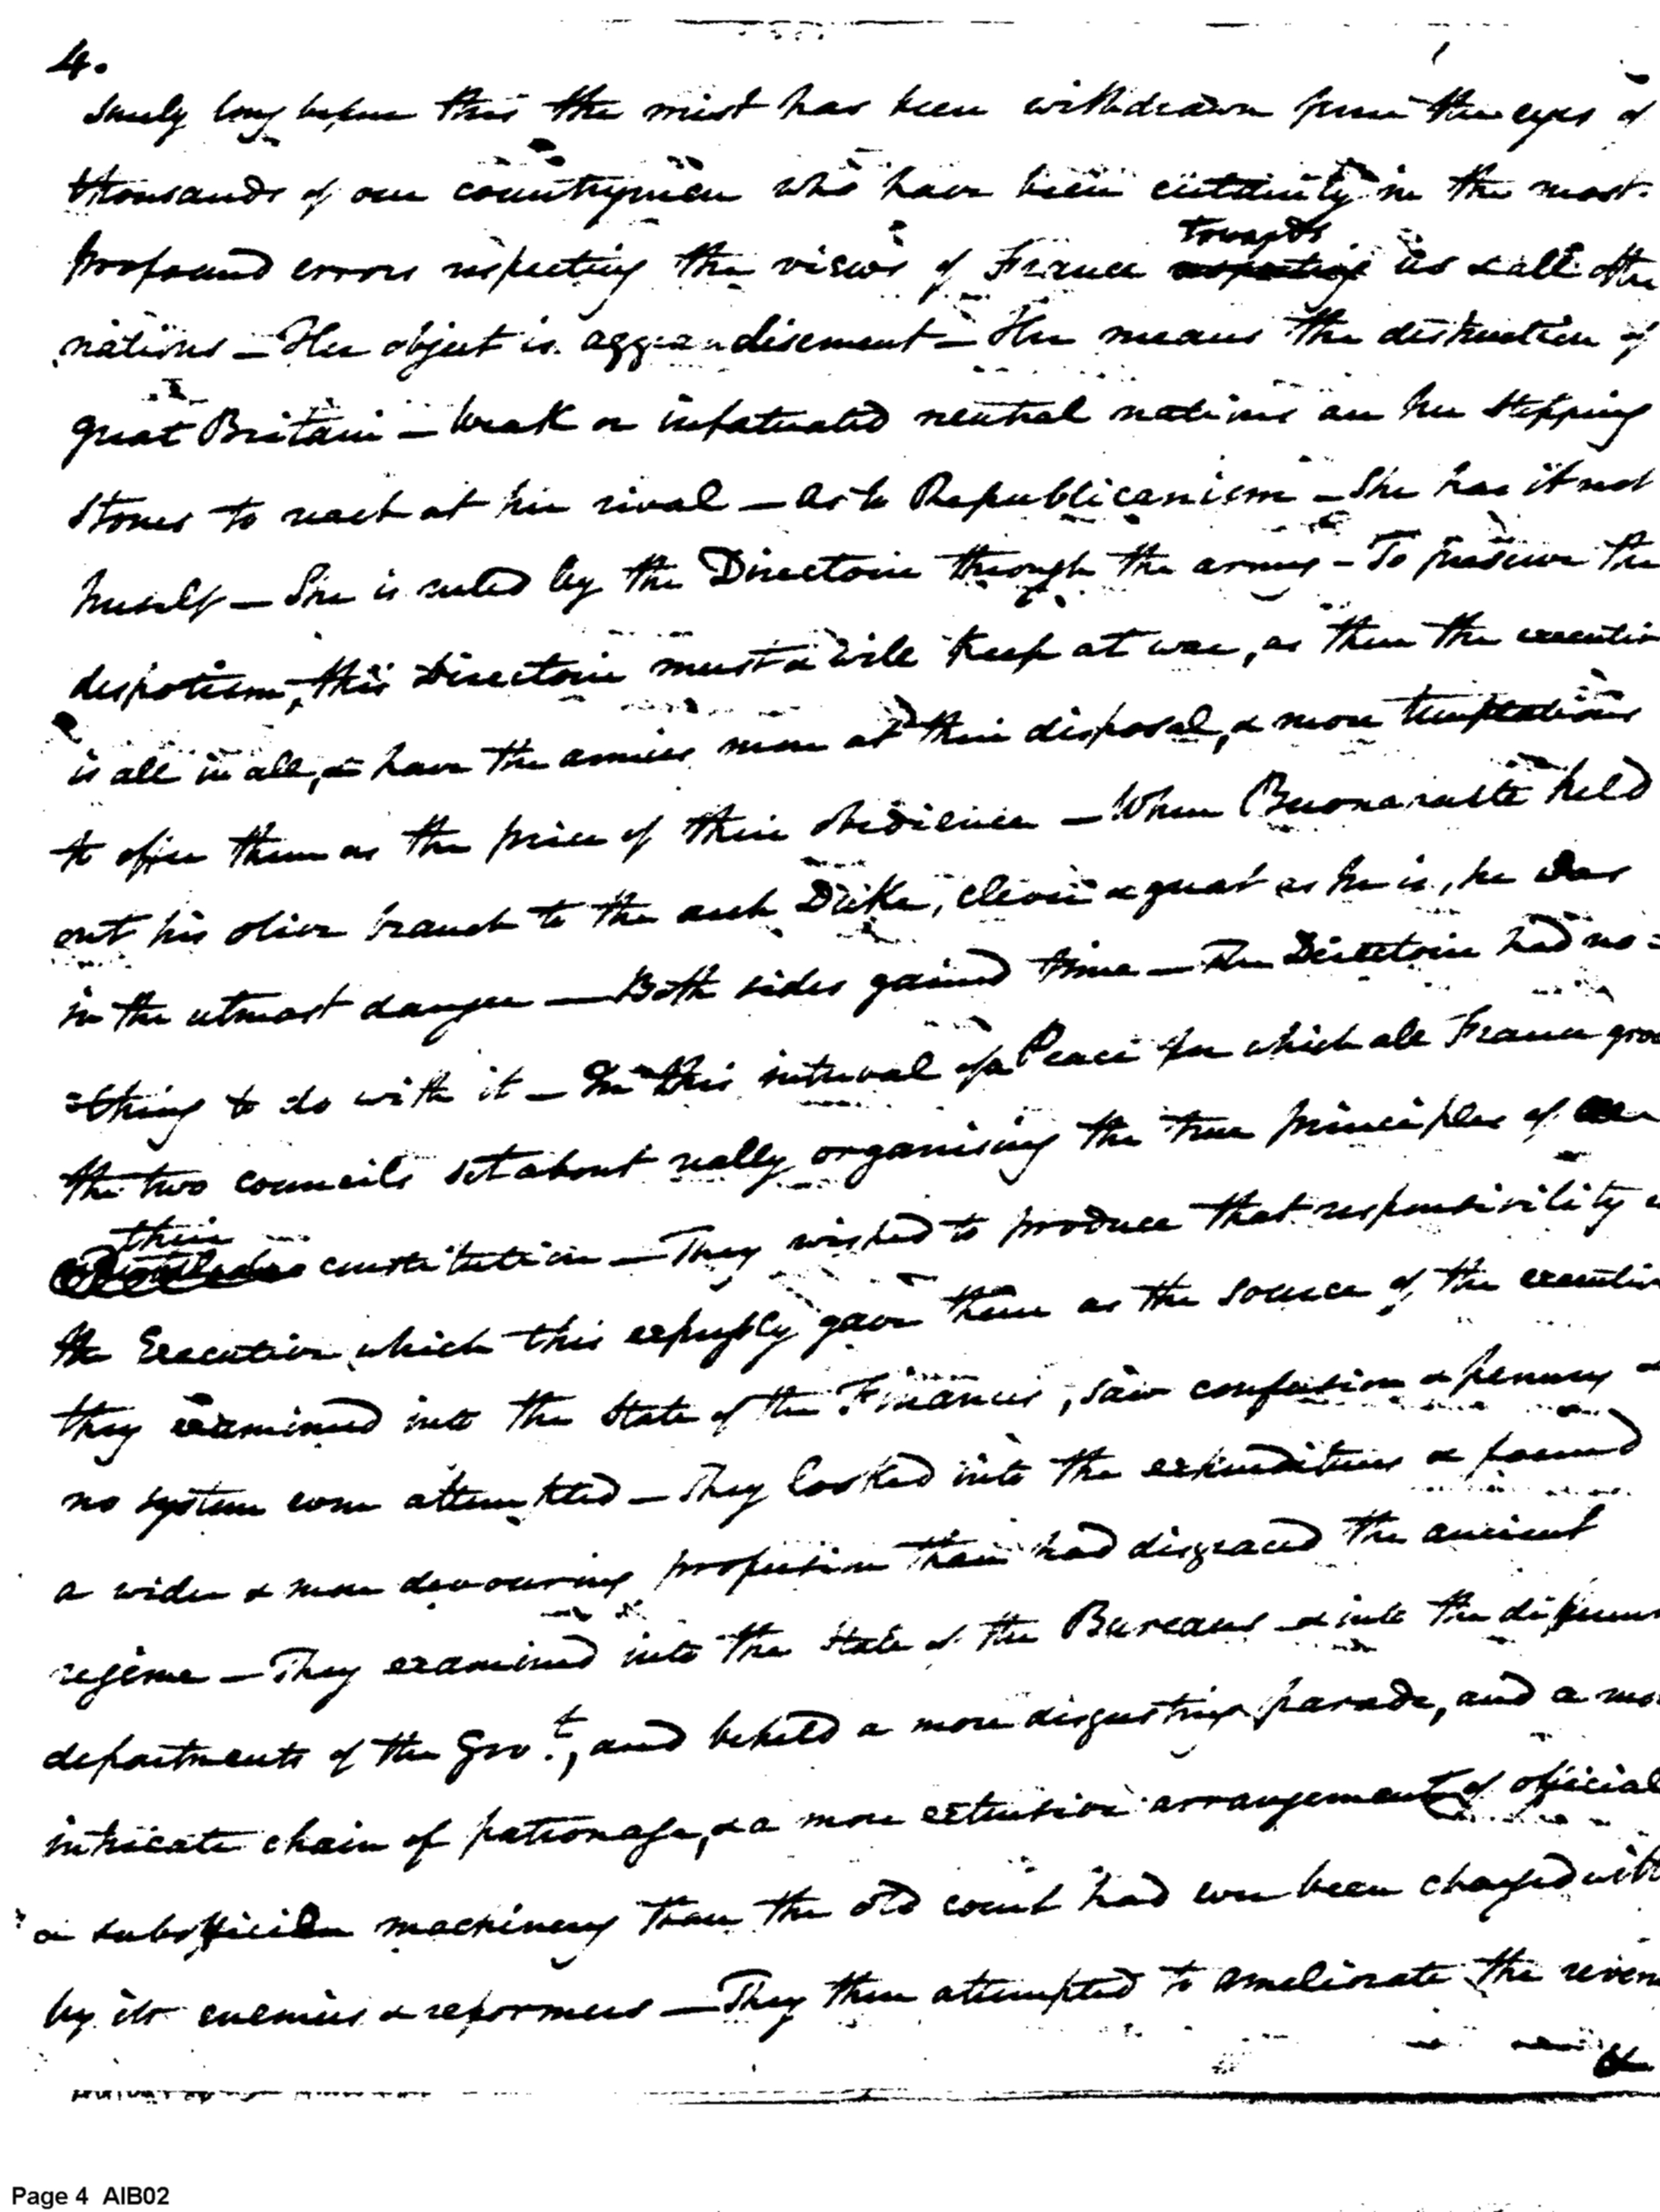 4.
Surely long before this the mist has been withdrawn from the eyes of
thousands of our countrymen who have been certainly in the most
profound errors respecting the views of France towards us & all other
nations — Her object is aggrandisement — Her means the destruction of
great Britain — weak or infatuated neutral nations are her stepping
stones to reach at her rival — As to Republicanism — She has it not
herself — She is ruled by the Directoire through the army — To preserve the
despotism, this Directoire must & will keep at war, as then the executive
is all in all, & have the armies more at their disposal, & more temptations
to offer them as the price of their obedience — When Buonaparte held
out his olive branch to the arch Duke, clever & great as he is, he was
in the utmost danger — Both sides gained time — The Directoire had no=
=thing to do with it — In this interval of a Peace for which all France
the two councils set about really organising the true principles of
their constitution — They wished to produce that responsibility
the Executive which this expressly gave them as the source of the executive
they examined into the State of the Finances, saw confusion & penury &
no system even attempted — They looked into the expenditures & found
a wider & more devouring profusion than had disgraced the ancient
regime — They examined into the State of the Bureaus & into the
departments of the Govt., and beheld a more disgusting parade, and a
intricate chain of patronage, & a more extensive arrangement of official
or subofficial machinery than the old court had ever been charged with
by its enemies & reformers — They then attempted to ameliorate the
&
Page 4 AIB02